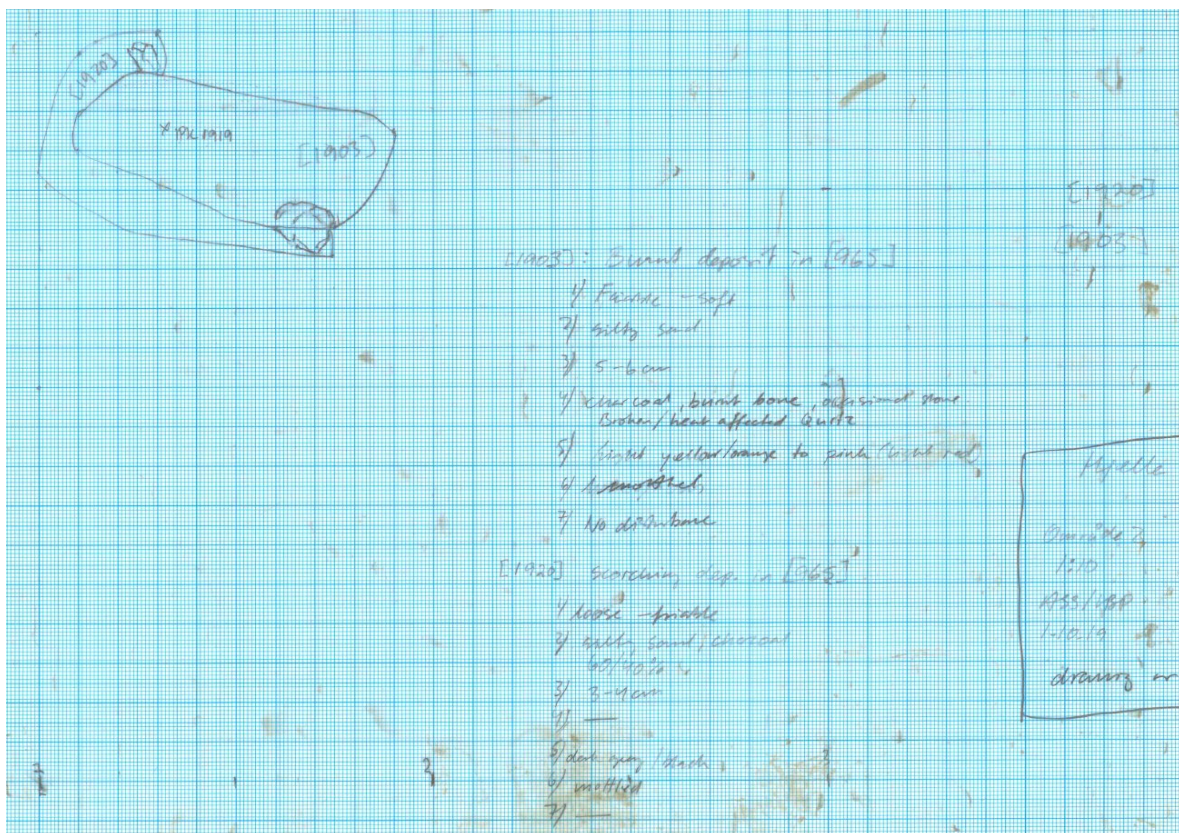 [1920]
x PK 1919
[1903]
[1920]
[1903]
[1903]: Burnt deposit in [965]
1/ Friable - soft
2/ silty sand
3/ 5-6 cm
4/ charcoal, burnt bone, occasional stone.
Broken/heat affected Quartz
5/ light yellow/orange to pink (light red)
6/
7/ No disturbance
[1920] scorching dep. in [965]
1/ loose - friable
2/ silty sand/charcoal
60/40%
3/ 3-4 cm
4/ —
5/ dark grey/black
6/ mottled
7/ —
Hjelle
Område 2
1:10
1.10.19
drawing